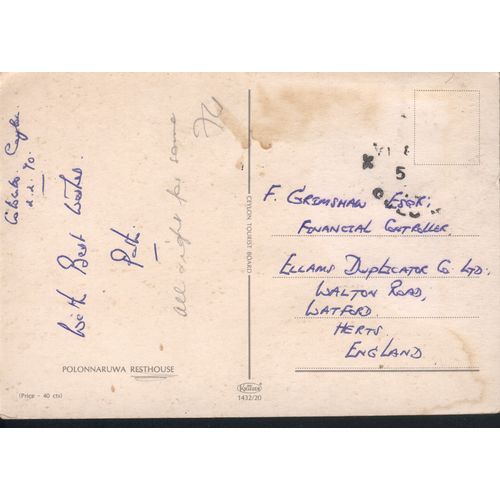 Colombo. Ceylon.
2.2.70.
With Best Wishes.
Pat.
All right for some
POLONNARUWA RESTHOUSE
(Price - 40 cts)
CEYLON TOURIST BOARD
1432/20
5
F. GRIMSHAW ESQR;
FINANCIAL CONTROLLER.
ELLAMS DUPLICATOR CO LTD.
WALTON ROAD,
WATFORD.
HERTS.
ENGLAND.